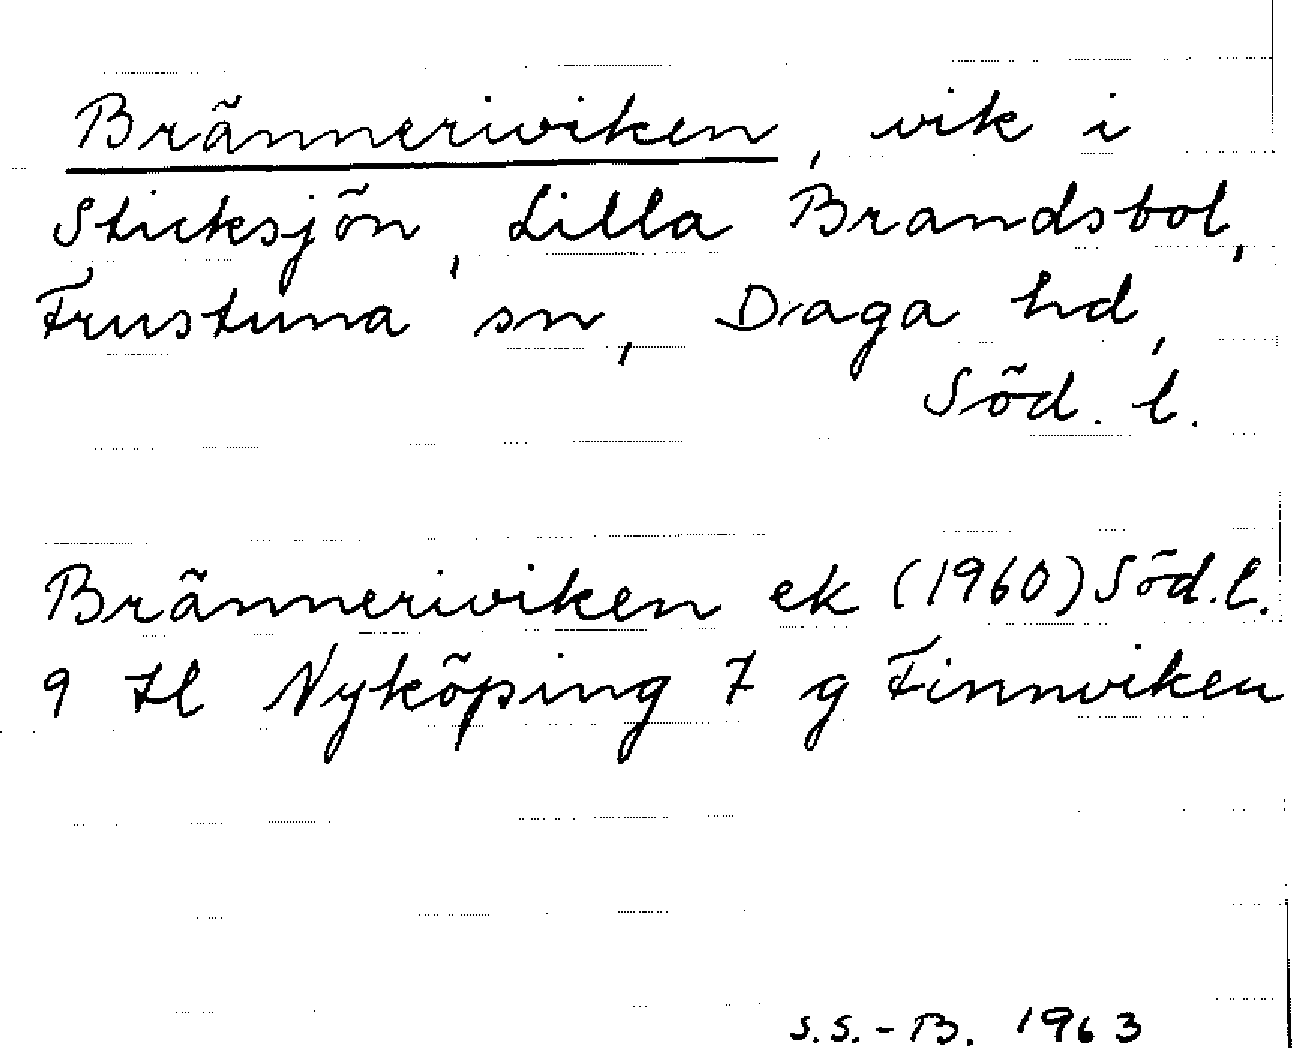 Bränneriviken, vik i
Sticksjön, Lilla Brandsbol,
Frustuna sn, Daga hd,
Söd. l.
Bränneriviken ek (1960) Söd. l.
9 tl Nyköping 7 g Finnviken
S.S.-B. 1963